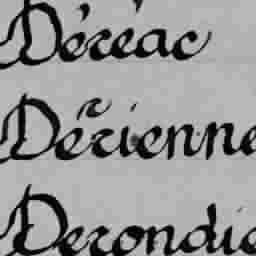 Déréac
Dérienne
Derondie